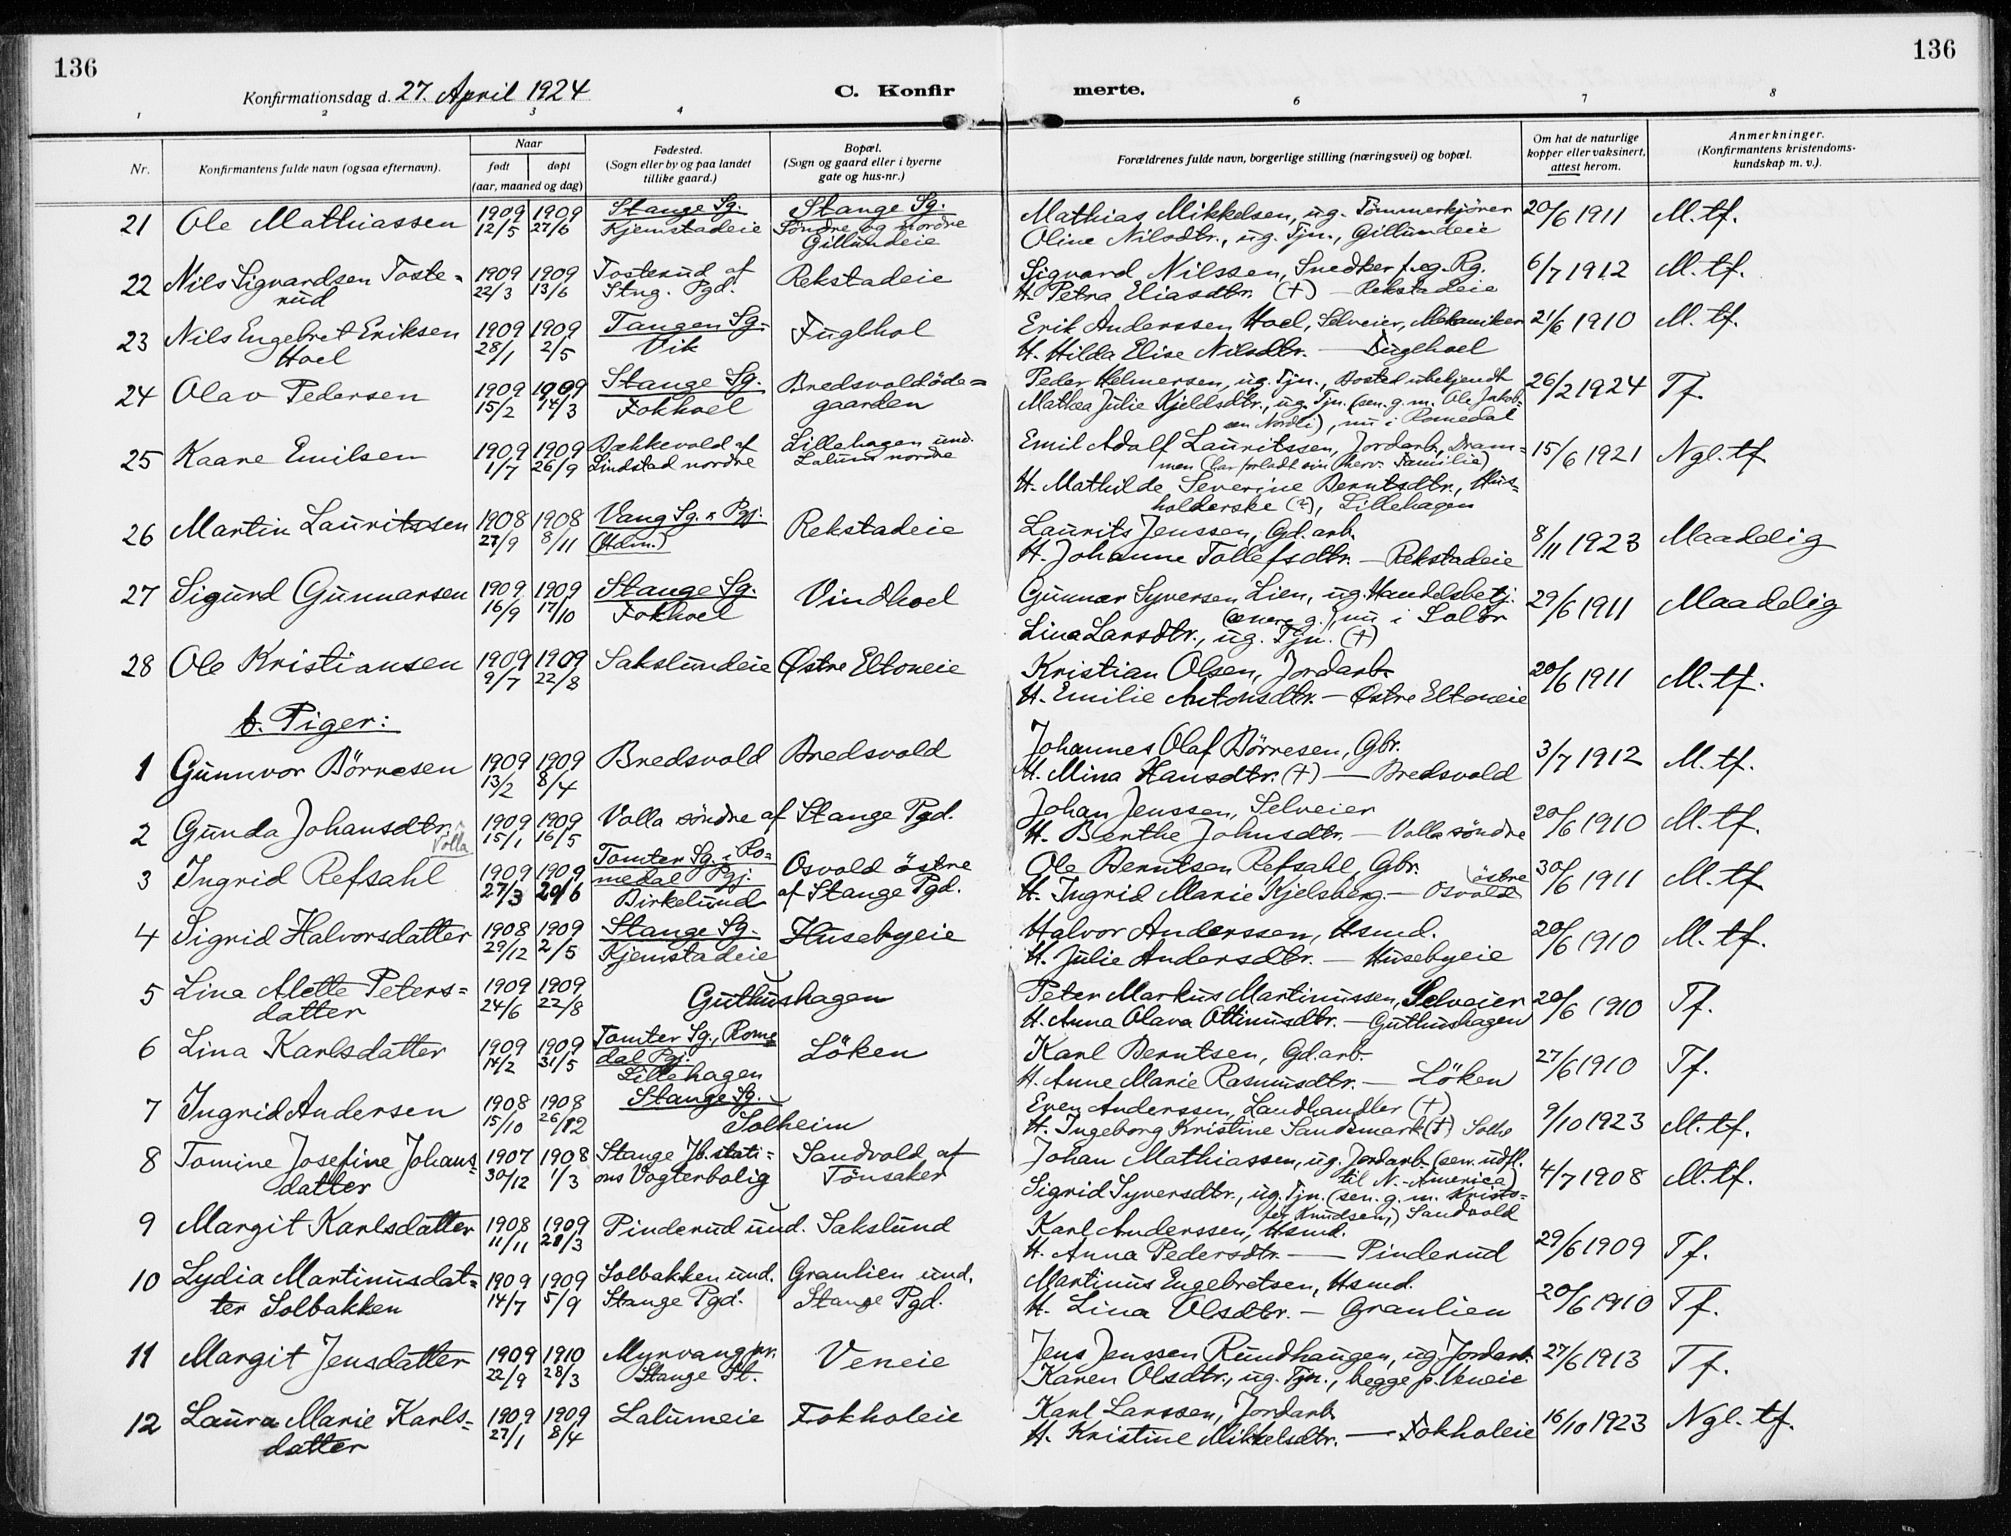 136
136
Konfirmationsdag d. 27. April 1924
C. Konfir
merte.
1 2 3 4 6 7 8
Nr. Konfirmantens fulde navn (ogsaa efternavn). Naar født døpt (aar, maaned og dag) Fødested. (Sogn eller by og paa landet tillike gaard.) Bopæl. (Sogn og gaard eller i byerne gate og hus-nr.) Forældrenes fulde navn, borgerlige stilling (næringsvei) og bopæl. Om hat de naturlige kopper eller vaksinert, attest herom. Anmerkninger. (Konfirmantens kristendoms-kundskap m. v.).
21 Ole Mathiassen 1909 12/5 1909 27/6 Stange Sg. Kjemstadeie Stange Sg. Söndre og nordre Gillundeie Mathias Mikkelsen, ug. Tömmerkjörer 20/6 1911 M. tf.
Oline Nilsdtr., ug. Tjn., Gillundeie
22 Nils Sigvardsen Toste=rud 1909 22/3 1909 13/6 Tosterud af Stng. Pgd. Rekstadeie Sigvard Nilssen, Snedker f. eg. Rg. 6/7 1912 M. tf.
H. Petra Eliasdtr. (+) — Rekstadeie
23 Nils Engebret Eriksen Hoel 1909 28/1 1909 2/5 Tangen Sg. Vik Fuglhol Erik Anderssen Hoel, Selveier, Mekaniker 21/6 1910 M. tf.
H. Hilda Elise Nilsdtr. — Fuglhoel
24 Olav Pedersen 1909 15/2 1909 14/3 Stange Sg. Fokhoel Bredsvoldöde=gaarden Peder Helmersen, ug. Tjn., Bosted ubekjendt 26/2 1924 Tf.
Mathea Julie Kjeldsdtr., ug. Tjn. (sen. g. m. Ole Jakob=
sen Nordli), nu i Romedal
25 Kaare Emilsen 1909 1/7 1909 26/9 Bækkevold af Lindstad nordre Lillehagen und. Lalum nordre Emil Adolf Lauritssen, Jordarb., Dram= 15/6 1921 Ngl. tf
men (har forladt sin Familie)
H. Mathilde Severine Berntsdtr., Hus=
holderske (?), Lillehagen
26 Martin Lauritssen 1908 27/9 1908 8/11 Vang Sg. & Pgj. (Hdm.) Rekstadeie Laurits Jenssen, Gd. arb. 8/11 1923 Maadelig
H. Johanne Tollefsdtr. — Rekstadeie
27 Sigurd Gunnarsen 1909 16/9 1909 17/10 Stange Sg. Fokhoel Vindhoel Gunnar Syversen Lien, ug. Handelsbetj. 29/6 1911 Maadelig
g.), nu i Solör
Lina Larsdtr., ug. Tjn. (+)
28 Ole Kristiansen 1909 9/7 1909 22/8 Sakslundeie Østre Eltoneie Kristian Olsen, Jordarb. 20/6 1911 M. tf.
H. Emilie Antonsdtr. — Østre Eltoneie
b. Piger:
1 Gunnvor Börresen 1909 13/2 1909 8/4 Bredsvold Bredsvold Johannes Olaf Börresen, Gbr. 3/7 1912 M. tf.
H. Mina Hansdtr. (+) — Bredsvold
2 Gunda Johansdtr. Volla 1909 15/1 1909 16/5 Volla söndre af Stange Pgd. Johan Jenssen, Selveier 20/6 1910 M. tf.
H. Berthe Johnsdtr. — Volla söndre
3 Ingrid Refsahl 1909 27/3 1909 20/6 Tomter Sg. i Ro=medal Pgj. Birkelund Osvold östre af Stange Pgd. Ole Berntsen Refsahl, Gbr. 30/6 1911 M. tf
H. Ingrid Marie Kjelsberg — Osvold östre
4 Sigrid Halvorsdatter 1908 29/12 1909 2/5 Stange Sg. Kjemstadeie Husebyeie Halvor Anderssen, Hsmd. 20/6 1910 M. tf.
H. Julie Andersdtr. — Husebyeie
5 Lina Alette Peters=datter 1909 24/6 1909 22/8 Guthushagen Peter Markus Martinussen, Selveier 20/6 1910 Tf.
H. Anna Olava Ottinusdtr. — Guthushagen
6 Lina Karlsdatter 1909 14/2 1909 31/5 Tomter Sg., Rome=dal Pgj. Lillehagen Löken Karl Berntsen, Gd. arb. 27/6 1910 Tf.
H. Anne Marie Rasmusdtr. — Löken
7 Ingrid Andersen 1908 15/10 1908 26/12 Stange Sg. Solheim Even Anderssen, Landhandler (+) 9/10 1923 M. tf.
H. Ingeborg Kristine Sandsmark (+) Solh.
8 Tomine Josefine Johans=datter 1907 30/12 1908 1/3 Stange Jb. stati=ons Vogterbolig Sandvold af Tönsaker Johan Mathiassen, ug. Jordarb. (sen. udfl. 4/7 1908 M. tf.
til N.-Amerika)
Sigrid Syversdtr., ug. Tjn. (sen. g. m. Kristo=
fer Knudsen) Sandvold
9 Margit Karlsdatter 1908 11/11 1909 28/3 Pinderud und. Sakslund Karl Anderssen, Hsmd. 29/6 1909 Tf.
H. Anna Pedersdtr. — Pinderud
10 Lydia Martinusdat=ter Solbakken 1909 14/7 1909 5/9 Solbakken und. Stange Pgd. Granlien und. Stange Pgd. Martinus Engebretsen, Hsmd. 20/6 1910 Tf.
H. Lina Olsdtr. — Granlien
11 Margit Jensdatter 1909 22/9 1910 28/3 Myrvang pr. Stange St. Veneie Jens Jenssen Rundhaugen, ug. Jordarb. 27/6 1913 Tf.
Karen Olsdtr., ug. Tjn., begge p. Veneie
12 Laura Marie Karls=datter 1909 27/1 1909 8/4 Lalumeie Fokholeie Karl Larssen, Jordarb. 16/10 1923 Ngl. tf.
H. Kristine Mikkelsdtr. — Fokholeie